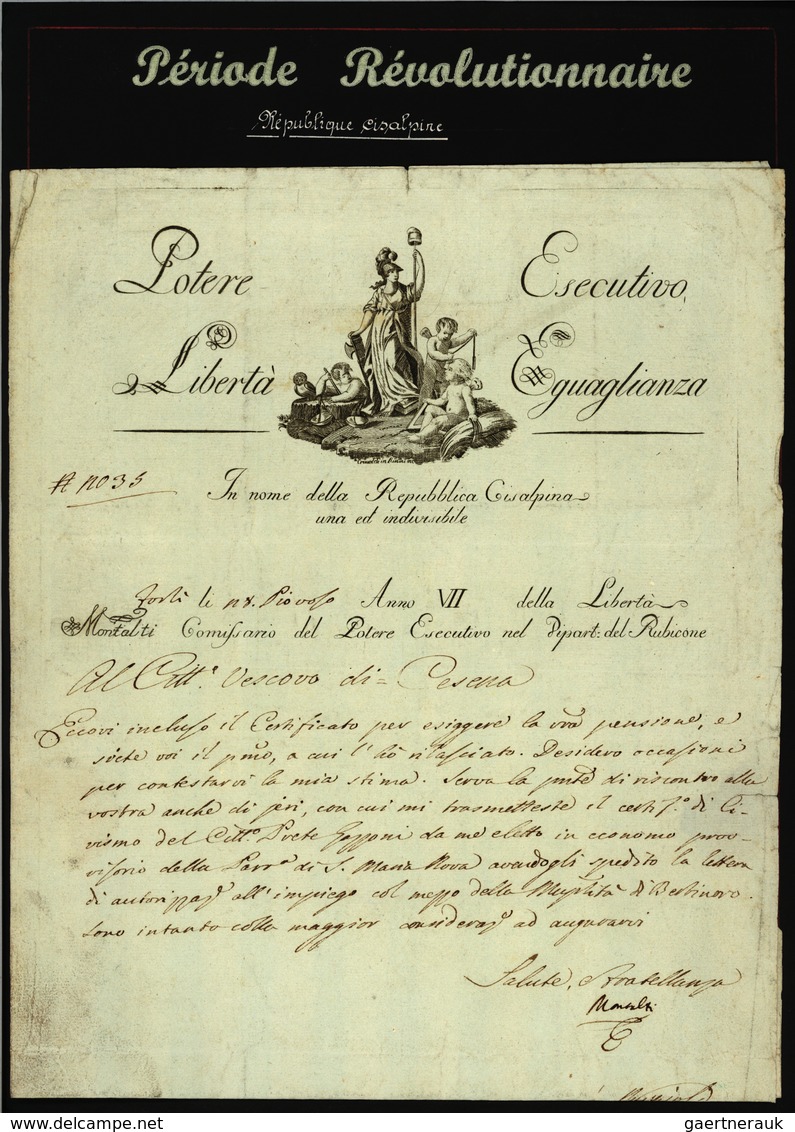 Période Révolutionnaire
République cisalpine
Potere Esecutivo
Libertà Eguaglianza
In nome della Repubblica Cisalpina
una ed indivisibile
Forlì li Piovoso Anno VII della Libertà
Montalti Comissario del Potere Esecutivo nel Dipart: del Rubicone
Al Citt.º Vescovo di Cesena
Eccovi incluso il Certificato per esiggere la vrã pensione, e
siete voi il pmõ, a cui l'hò rilasciato. Desidero occasioni
per contestarvi la mia stima. Serva la pnte di riscontro alla
vostra anche di jeri, con cui mi trasmetteste il certif.º di Ci-
vismo del Citt.º Prete da me eletto in economo prov-
visorio della Parr.ª di S. Maria Nova avendogli spedito la lettera
di autorizzaz.e all'impiego col mezzo della Muniplità di Bertinoro.
Sono intanto colla maggior consideraz.e ad augurarvi
Salute, Fratellanza
Montalti
gaertnerauk @ delcampe.net